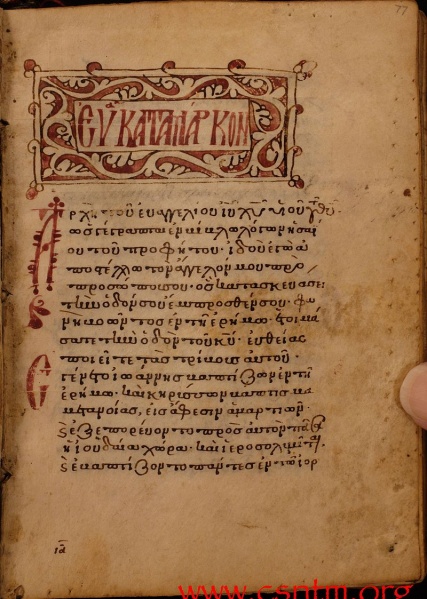 ΕΥᾺ ΚΑΤΑ ΜΑΡΚΟΝ
77
Ἀρχὴ τοῦ εὐαγγελίου ἰῦ χῦ υἱοῦ θῦ·
ὡς γέγραπται ἐν λόγων ἡσαΐ
ου τοῦ προφήτου· ἰδοὺ ἐγὼ ἀ
ποστέλλω τὸν ἄγγελόν μου πρὸ
προσώπου σου· ὃς κατασκευάσει
τὴν ὁδόν σου ἔμπροσθέν σου· φω
νὴ βοῶντος ἐν τῆ ἐρήμω· ἑτοιμά
σατε τὴν ὁδὸν τοῦ κῦ· εὐθείας
ποιεῖτε τὰς τρίβους αὐτοῦ·
Ἐγένετο ἰωάννης βαπτίζων ἐν τῆ
ἐρήμω· καὶ κηρύσσων βάπτισμα
μετανοίας, εἰς ἄφεσιν ἁμαρτιῶν
ϗ ἐξεπορεύοντο πρὸς αὐτὸν πᾶσα
ἡ ἰουδαία χώρα· καὶ ἱεροσολυμῖται·
ϗ ἐβαπτίζοντο πάντες ἐν τῶ ἰορ
ια
www.csntm.org